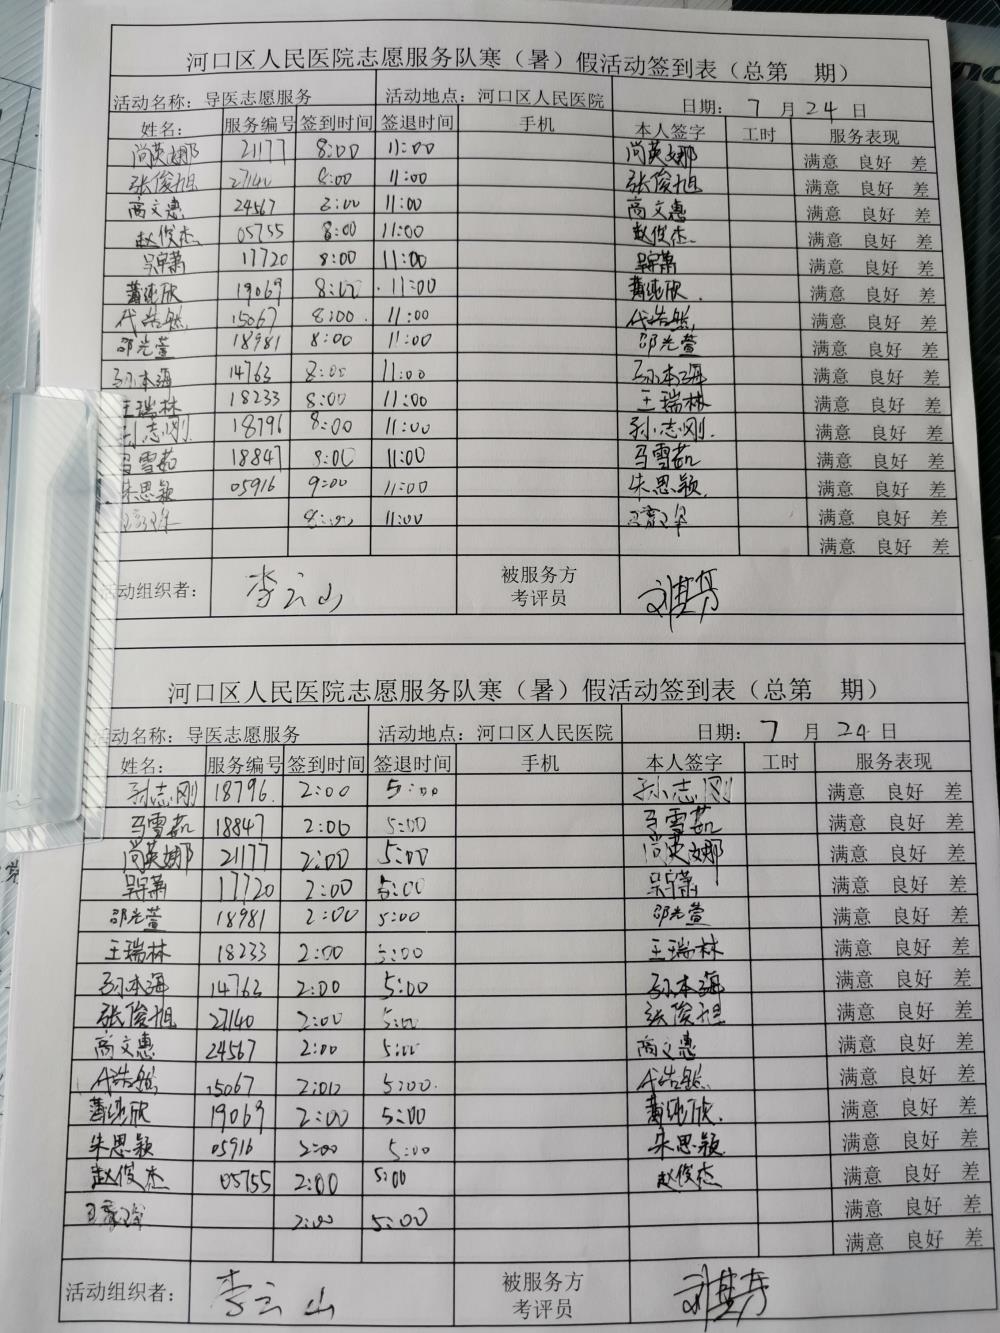 河口区人民医院志愿服务队寒（暑）假活动签到表（总第 期）
活动名称：导医志愿服务 活动地点：河口区人民医院 日期：7 月 24 日
姓名： 服务编号 签到时间 签退时间 手机 本人签字 工时 服务表现
尚英娜 21177 8:00 11:00 尚英娜 满意 良好 差
张俊旭 27140 8:00 11:00 张俊旭 满意 良好 差
高文惠 24567 8:00 11:00 高文惠 满意 良好 差
赵俊杰 05755 8:00 11:00 赵俊杰 满意 良好 差
吴宇萧 17720 8:00 11:00 吴宇萧 满意 良好 差
19069 8:00 11:00 满意 良好 差
代浩然 15067 8:00 11:00 代浩然 满意 良好 差
邵光萱 18981 8:00 11:00 邵光萱 满意 良好 差
孙本海 14763 8:00 11:00 孙本海 满意 良好 差
王瑞林 18233 8:00 11:00 王瑞林 满意 良好 差
孙志刚 18796 8:00 11:00 孙志刚 满意 良好 差
马雪茹 18847 8:00 11:00 马雪茹 满意 良好 差
朱思颖 05916 9:00 11:00 朱思颖 满意 良好 差
8:00 11:00 满意 良好 差
满意 良好 差
活动组织者： 李云山 被服务方 考评员
河口区人民医院志愿服务队寒（暑）假活动签到表（总第 期）
活动名称：导医志愿服务 活动地点：河口区人民医院 日期：7 月 24 日
姓名： 服务编号 签到时间 签退时间 手机 本人签字 工时 服务表现
孙志刚 18796 2:00 5:00 孙志刚 满意 良好 差
马雪茹 18847 2:00 5:00 马雪茹 满意 良好 差
尚英娜 21177 2:00 5:00 尚英娜 满意 良好 差
吴宇萧 17720 2:00 5:00 吴宇萧 满意 良好 差
邵光萱 18981 2:00 5:00 邵光萱 满意 良好 差
王瑞林 18233 2:00 5:00 王瑞林 满意 良好 差
孙本海 14763 2:00 5:00 孙本海 满意 良好 差
张俊旭 27140 2:00 5:00 张俊旭 满意 良好 差
高文惠 24567 2:00 5:00 高文惠 满意 良好 差
代浩然 15067 2:00 5:00 代浩然 满意 良好 差
19069 2:00 5:00 满意 良好 差
朱思颖 05916 2:00 5:00 朱思颖 满意 良好 差
赵俊杰 05755 2:00 5:00 赵俊杰 满意 良好 差
2:00 5:00 满意 良好 差
满意 良好 差
活动组织者： 李云山 被服务方 考评员